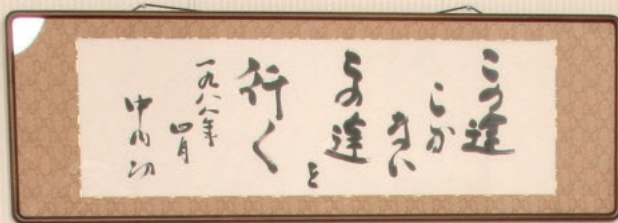 この途
しか
ない
この途
を
行く
一九八八年
四月
中内㓛